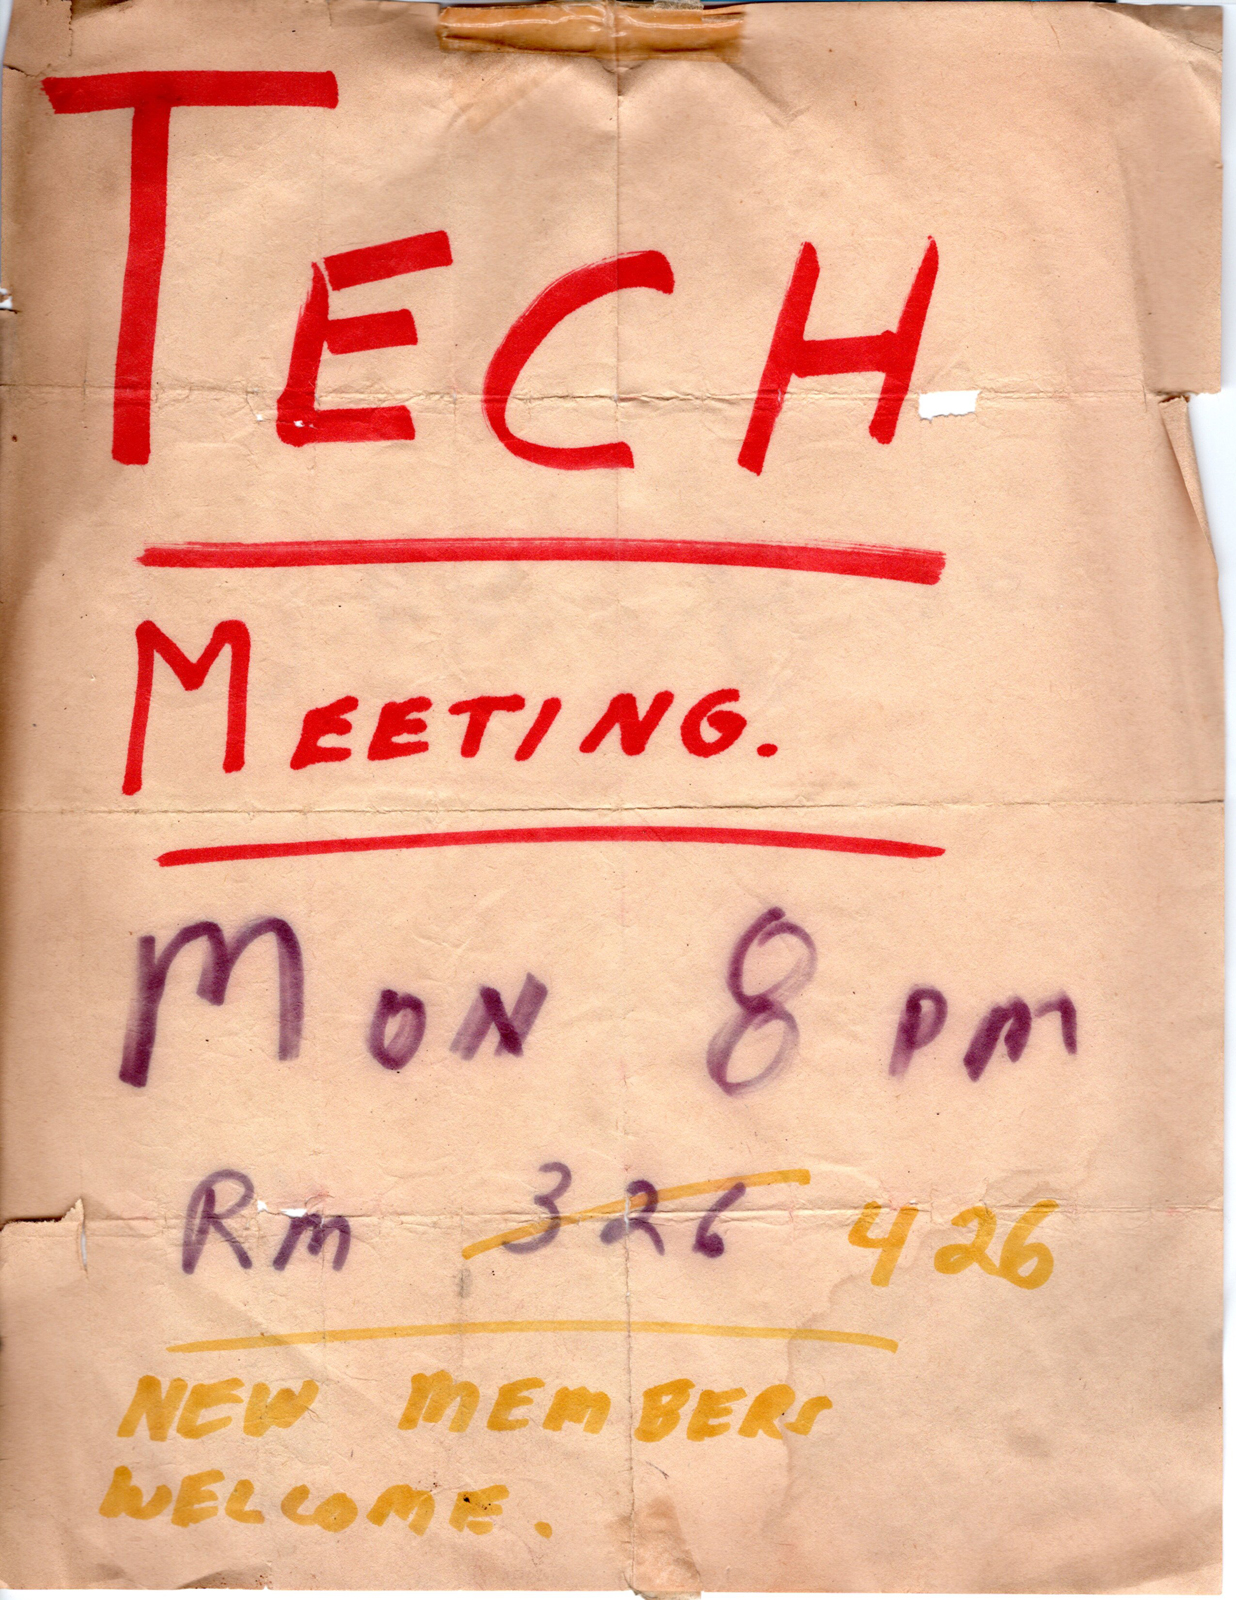 TECH
MEETING.
MON 8 PM
Rm 326 426
NEW MEMBERS
WELCOME.